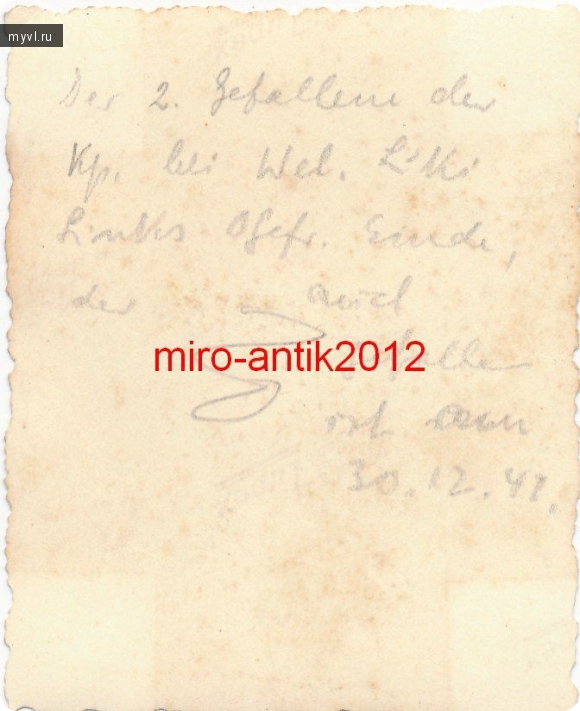 myvl.ru
Der 2. Gefallene der
Kp. bei Wel. Luki
Links Ogefr. Emde,
der auch
miro-antik2012
gefallen
ist am
30.12.41.